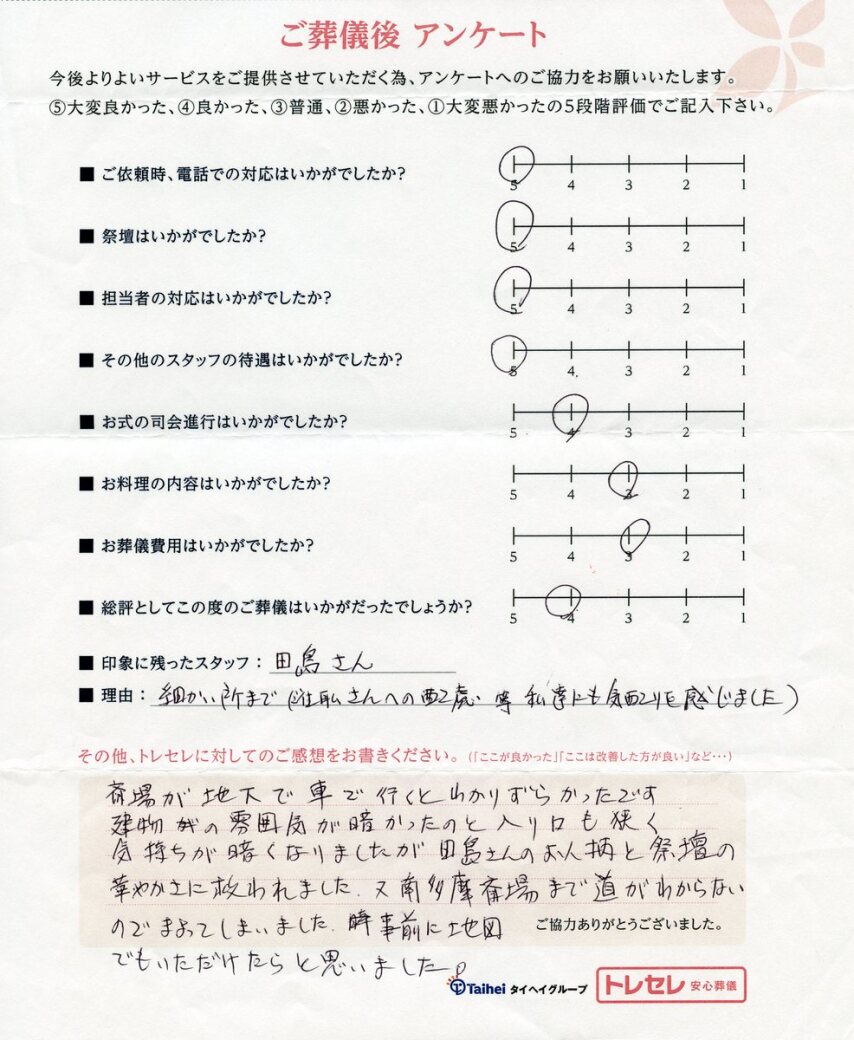 ご葬儀後 アンケート
今後よりよいサービスをご提供させていただく為、アンケートへのご協力をお願いいたします。
⑤大変良かった、④良かった、③普通、②悪かった、①大変悪かったの5段階評価でご記入下さい。
■ ご依頼時、電話での対応はいかがでしたか?
5 4 3 2 1
■ 祭壇はいかがでしたか?
5 4 3 2 1
■ 担当者の対応はいかがでしたか?
5 4 3 2 1
■ その他のスタッフの待遇はいかがでしたか?
5 4 3 2 1
■ お式の司会進行はいかがでしたか?
5 4 3 2 1
■ お料理の内容はいかがでしたか?
5 4 3 2 1
■ お葬儀費用はいかがでしたか?
5 4 3 2 1
■ 総評としてこの度のご葬儀はいかがだったでしょうか?
5 4 3 2 1
■ 印象に残ったスタッフ： 田島さん
■ 理由： 細かい所まで(住職さんへの配慮 等 私達にも気配りを感じました)
その他、トレセレに対してのご感想をお書きください。(「ここが良かった」「ここは改善した方が良い」など…)
斎場が地下で車で行くとわかりずらかったです
建物の雰囲気が暗かったのと入り口も狭く
気持ちが暗くなりましたが田島さんのお人柄と祭壇の
華やかさに救われました. 又南多摩斎場まで道がわからない
のでまよってしまいました. 事前に地図
ご協力ありがとうございました。
でもいただけたらと思いました。
Taihei タイヘイグループ
トレセレ 安心葬儀